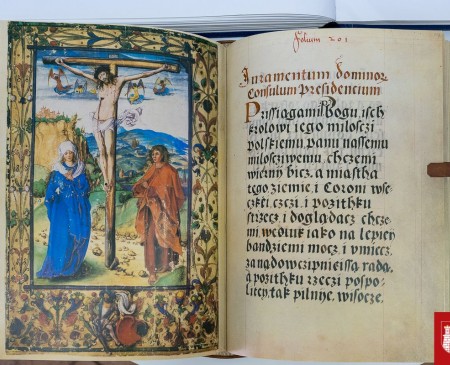 Folium 201
Juramentum Dominor
Consulum Presidencium
Prissiągamÿ Bogu, ẏsch
krolowi ięgo miloſczi
polſkiemu, panu naſſemu
miloſcziwemu, chczemi
wiernÿ bicz, a miaſtha
tego, ziemie, i Coroni wſe
czći, i pozithku
ſtrzecz i dogladacz chcze
mi, wedluk iako na lepieÿ
bandziemi mocz, i vmiecz,
za nądowczipnieiſſą radą,
a pozithku rzeczi poſpo
liteÿ, tak pilnÿe, wiſocze,